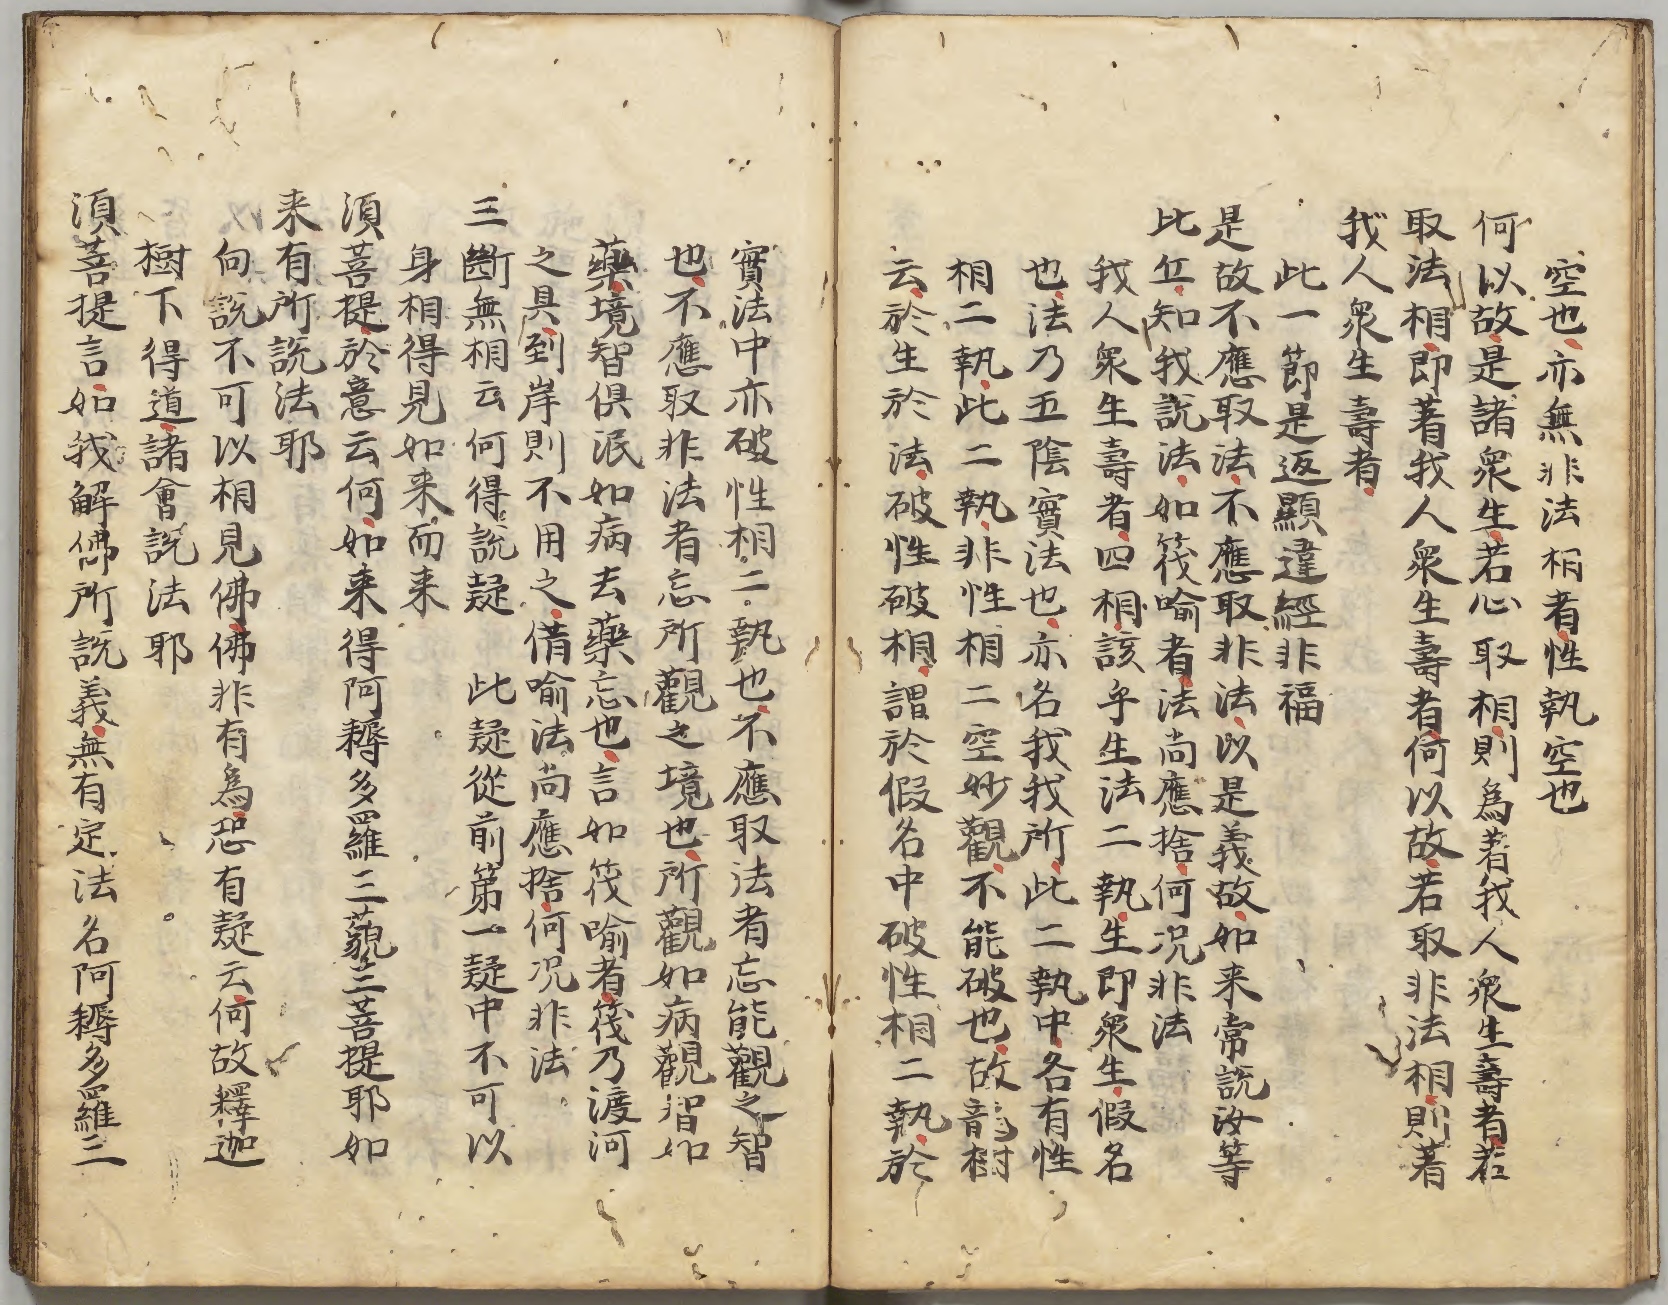 空也亦無非法相者性執空也
何以故是諸衆生若心取相則爲著我人衆生壽者若
取法相即著我人衆生壽者何以故若取非法相則著
我人衆生壽者
此一節是返顯違經非福
是故不應取法不應取非法以是義故如来常說汝等
比丘知我說法如筏喻者法尚應捨何况非法
我人衆生壽者四相該乎生法二執生即衆生假名
也法乃五陰實法也亦名我我所此二執中各有性
相二執此二執非性相二空妙觀不能破也故龍樹
云於生於法破性破相謂於假名中破性相二執於
實法中亦破性相二執也不應取法者忘能觀之智
也不應取非法者忘所觀之境也所觀如病觀智如
藥境智俱泯如病去藥忘也言如筏喻者筏乃渡河
之具到岸則不用之借喻法尚應捨何况非法
三斷無相云何得說疑 此疑從前第一疑中不可以
身相得見如来而来
須菩提於意云何如来得阿耨多羅三藐三菩提耶如
来有所說法耶
向說不可以相見佛佛非有爲恐有疑云何故釋迦
樹下得道諸會說法耶
須菩提言如我解佛所說義無有定法名阿耨多羅三